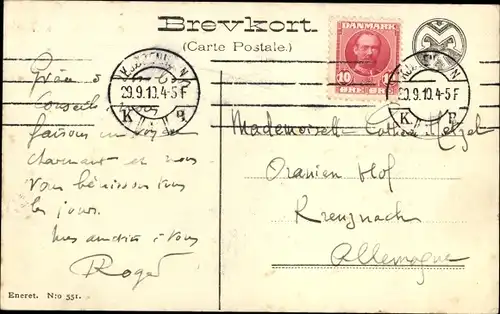 Brevkort.
(Carte Postale.)
DANMARK
10 10
ØRE ØRE
KJØBENHAVN
29.9.10.4-5 F
K. B.
KJØBENHAVN
29.9.10.4-5 F
K. B.
Grâce à vos bons
Conseils nous
faisons un voyage
charmant et nous
vous bénissons tous
les jours.
Mes amitiés à vous
Roger
Mademoiselle
Oranien Hof
Kreuznach
Allemagne
Eneret. N:o 551.